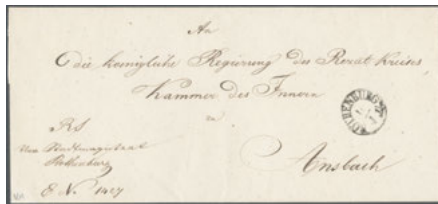 An
die königliche Regierung des Rezat Kreises
Kammer des Innern
in
Ansbach
RS
Vom Stadtmagistrat
Rothenburg
E. N. 1427